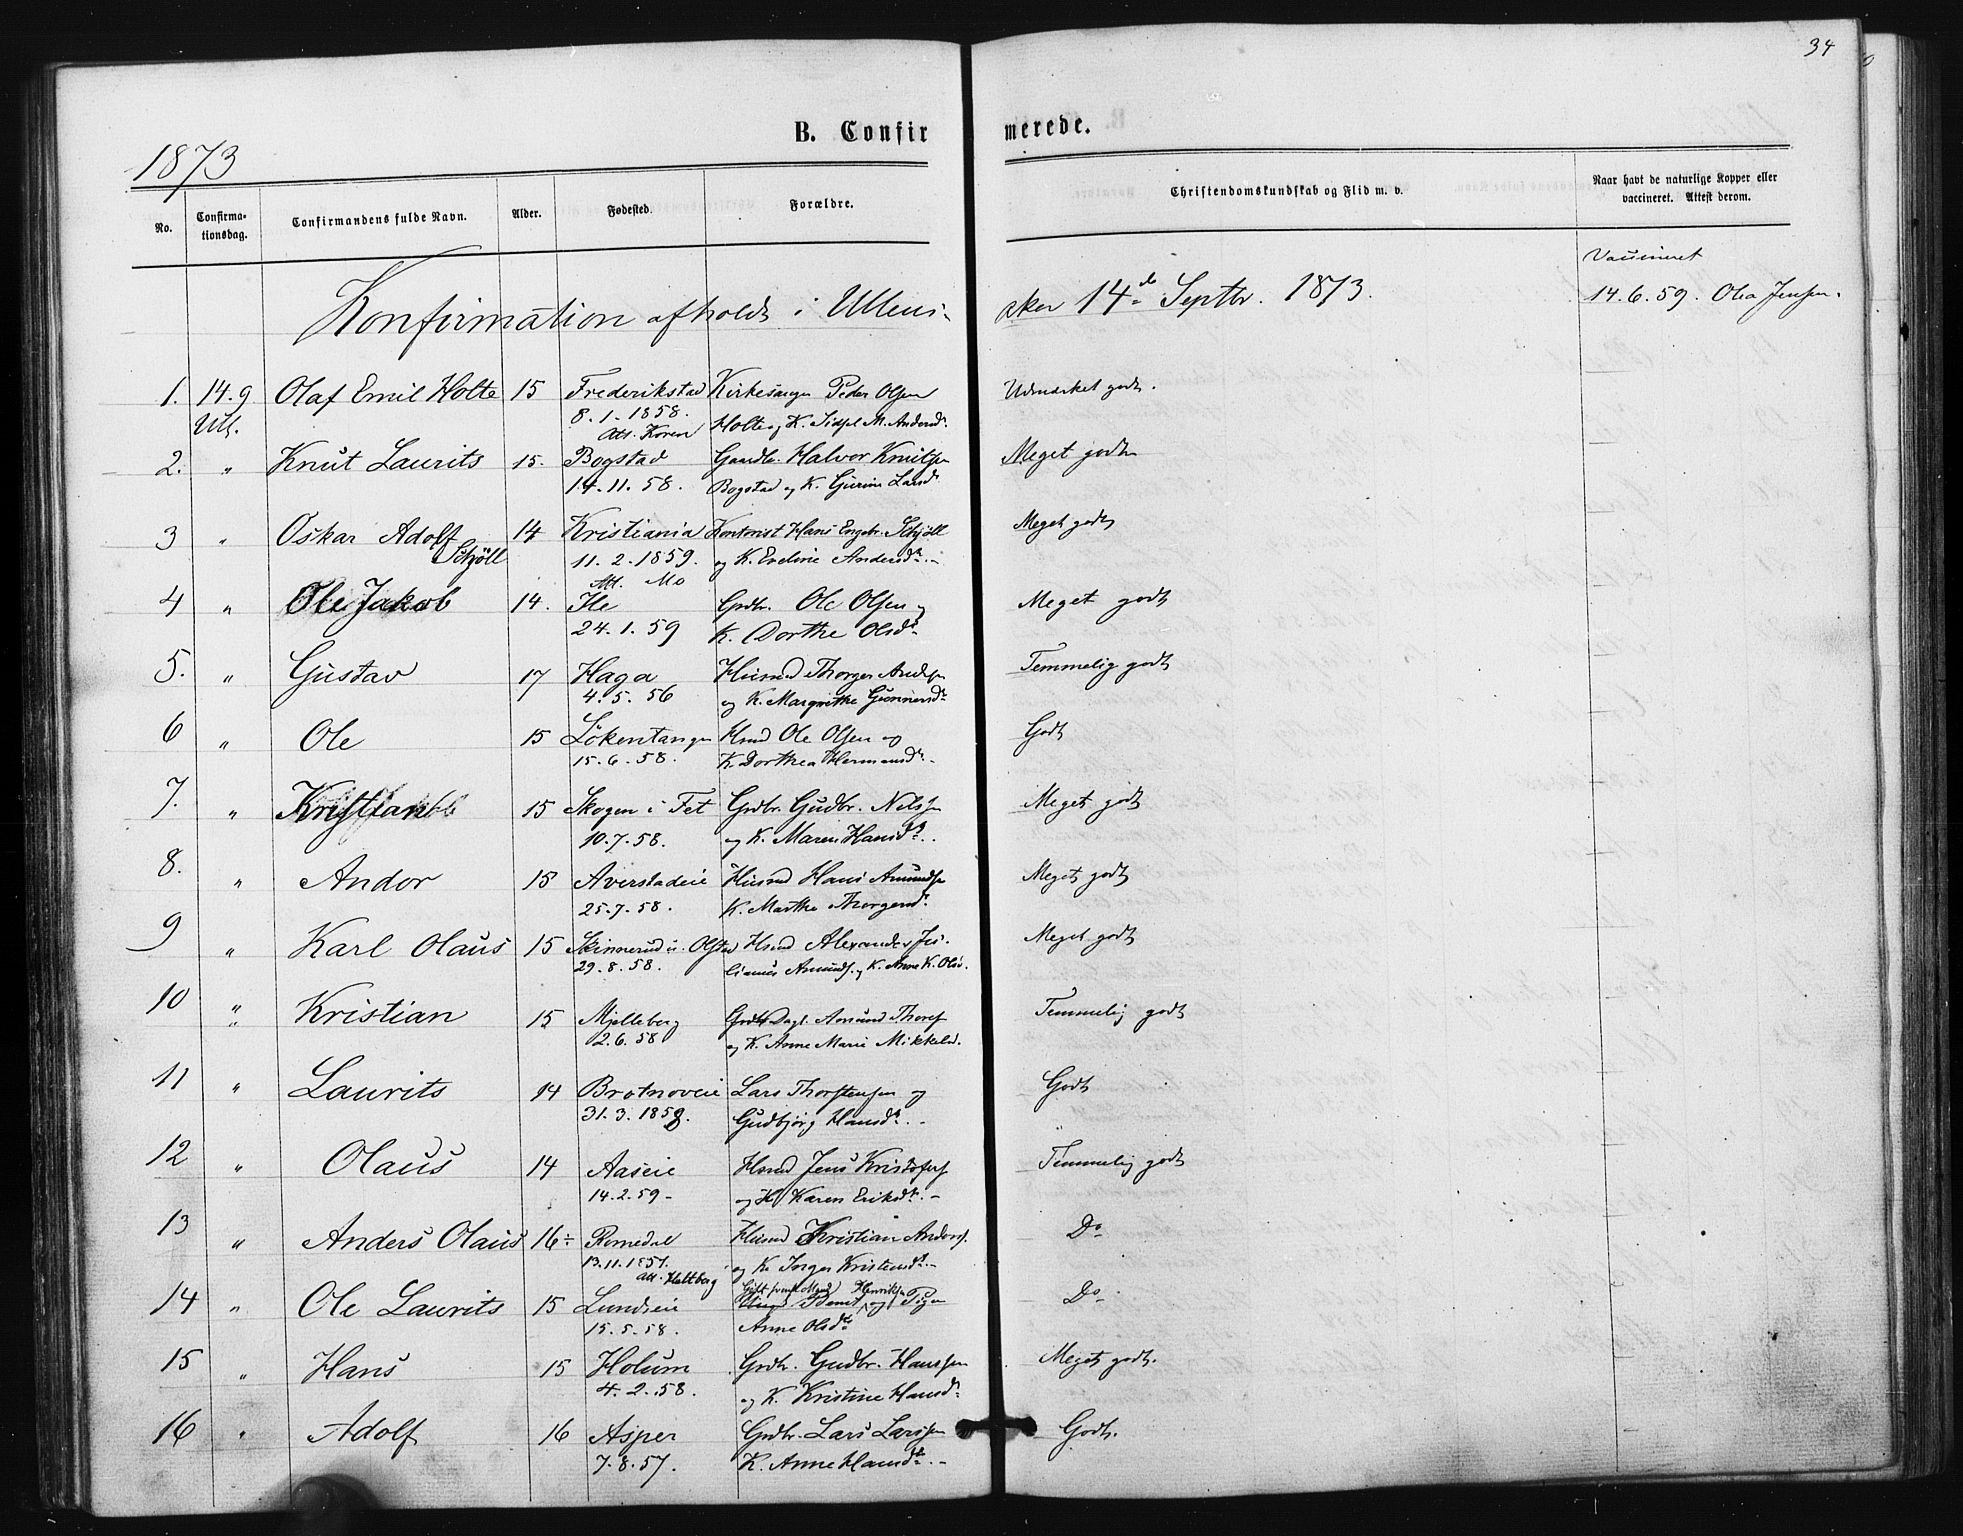 34
B. Confirmerede.
1873
No.
Confirmationsdag.
Confirmandens fulde Navn.
Alder.
Fødested.
Forældre.
Christendomskundskab og Flid m. v.
Naar havt de naturlige Kopper eller vaccineret. Attest derom.
Konfirmation afholdt i Ullens-
aker 14de Septbr. 1873.
Vaccineret
14.6.59. Olea Jensen.
1. 14.9 Olaf Emil Holte 15 Frederikstad Kirkesanger Peder Olsen Udmærket godt.
Ull. 8.1.1858. Holte og K. Sidsel M. Andersdr
Att. Koren
2. " Knut Laurits 15. Bogstad Gaardbr. Halvor Knutsen Meget godt
14.11.58. Bogstad og K. Gurine Larsd.
3 " Oskar Adolf 14 Kristiania Kontorist Hans Engebr. Schjöll Meget godt
Schjöll 11.2.1859. og K. Eveline Andersdr.
Att. Mo
4 " Ole Jakob 14. Ile Grdbr. Ole Olsen og Meget godt
24.1.59 K. Dorthe Olsdr
5. " Gustav 17 Haga Husmd Thorger Andersen Temmelig godt
4.5.56 og K. Margrethe Gunnersdr
6 " Ole 15 Lökentangen Hsmd Ole Olsen og Godt
15.6.58. K. Dorthea Hermansdr.
7. " Kristian 15 Skogen i Fet Grdbr. Gudbr. Nilssen Meget godt
10.7.58. og K. Maren Hansdr.
8. " Andor 15 Averstadeie Husmd Hans Amundsen Meget godt
25.7.58. K. Marthe Thorgersdr.
9 " Karl Olaus 15 Skinnerud u. Olstad Hsmd Alexander Jus- Meget godt
29.8.58. tinus Amunds. og K. Anne K. Olsd.
10 " Kristian 15 Mjelleberg Dagl. Amund Thors. Temmelig godt
2.6.58 og K. Anne Marie Mikkelsd.
11 " Laurits 14 Brotnoveie Lars Thorstensen og Godt
31.3.1859. Gudbjörg Hansdr.
12 " Olaus 14 Aaseie Hsmd Jens Kristofers. Temmelig godt
14.2.59 og K. Karen Eriksdr.
13 " Anders Olaus 16÷ Romedal Husmd Kristian Anders. Do
13.11.1857. og K. Inger Kristensdr.
Att. Heltberg
14 " Ole Laurits 15 Lundseie Gift Henriksen og Pigen Do
15.5.58. Anne Olsdtr
15 " Hans 15 Holum Grdbr. Gudbr. Hanssen Meget godt.
4.2.58. og K. Kristine Hansdr
16 " Adolf 16 Asper Grdbr. Lars Larssen Godt.
7.8.57. K. Anne Hansdtr.